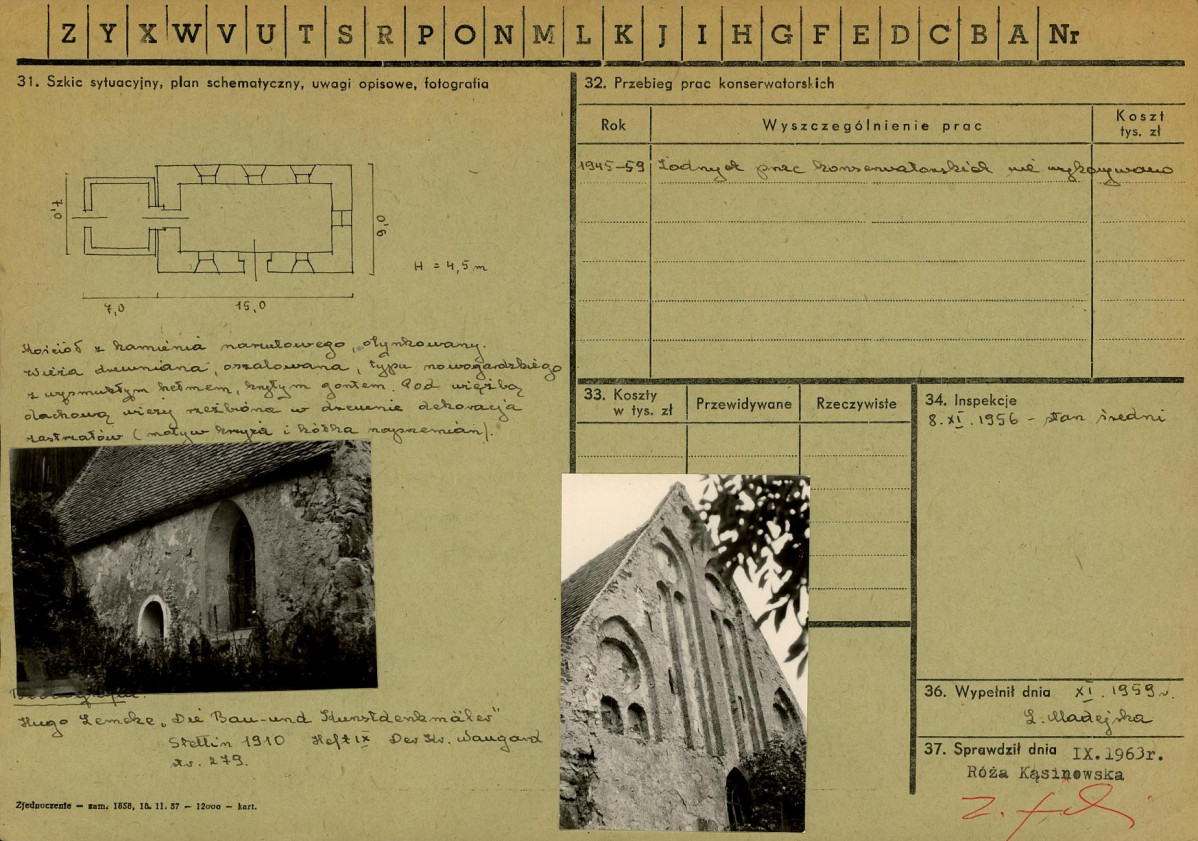 Z Y X W V U T S R P O N M L K J I H G F E D C B A Nr
31. Szkic sytuacyjny, plan schematyczny, uwagi opisowe, fotografia
7,0
9,0
H = 4,5 m
7,0
15,0
Kościół z kamienia narzutowego, otynkowany.
Wieża drewniana, oszalowana, typu nowogardzkiego
z wysmukłym hełmem, krytym gontem. Pod więźbą
dachową wieży rzeźbiona w drzewie dekoracja
zastrzałów (motyw krzyża i kółka naprzemian).
Hugo Lemcke „Die Bau-und Kunstdenkmäler"
Stettin 1910 Heft IX Der Kr. Naugard
str. 279.
Zjednoczenie — zam. 1858, 18. 11. 57 — 12000 — kart.
32. Przebieg prac konserwatorskich
Rok
Wyszczególnienie prac
Koszt
tys. zł
1945-59 Żadnych prac konserwatorskich nie wykonywano
33. Koszty
w tys. zł
Przewidywane
Rzeczywiste
34. Inspekcje
8.XI.1956 - stan średni
36. Wypełnił dnia XI.1959 r.
L. Madejska
37. Sprawdził dnia IX.1963r.
Róża Kąsinowska